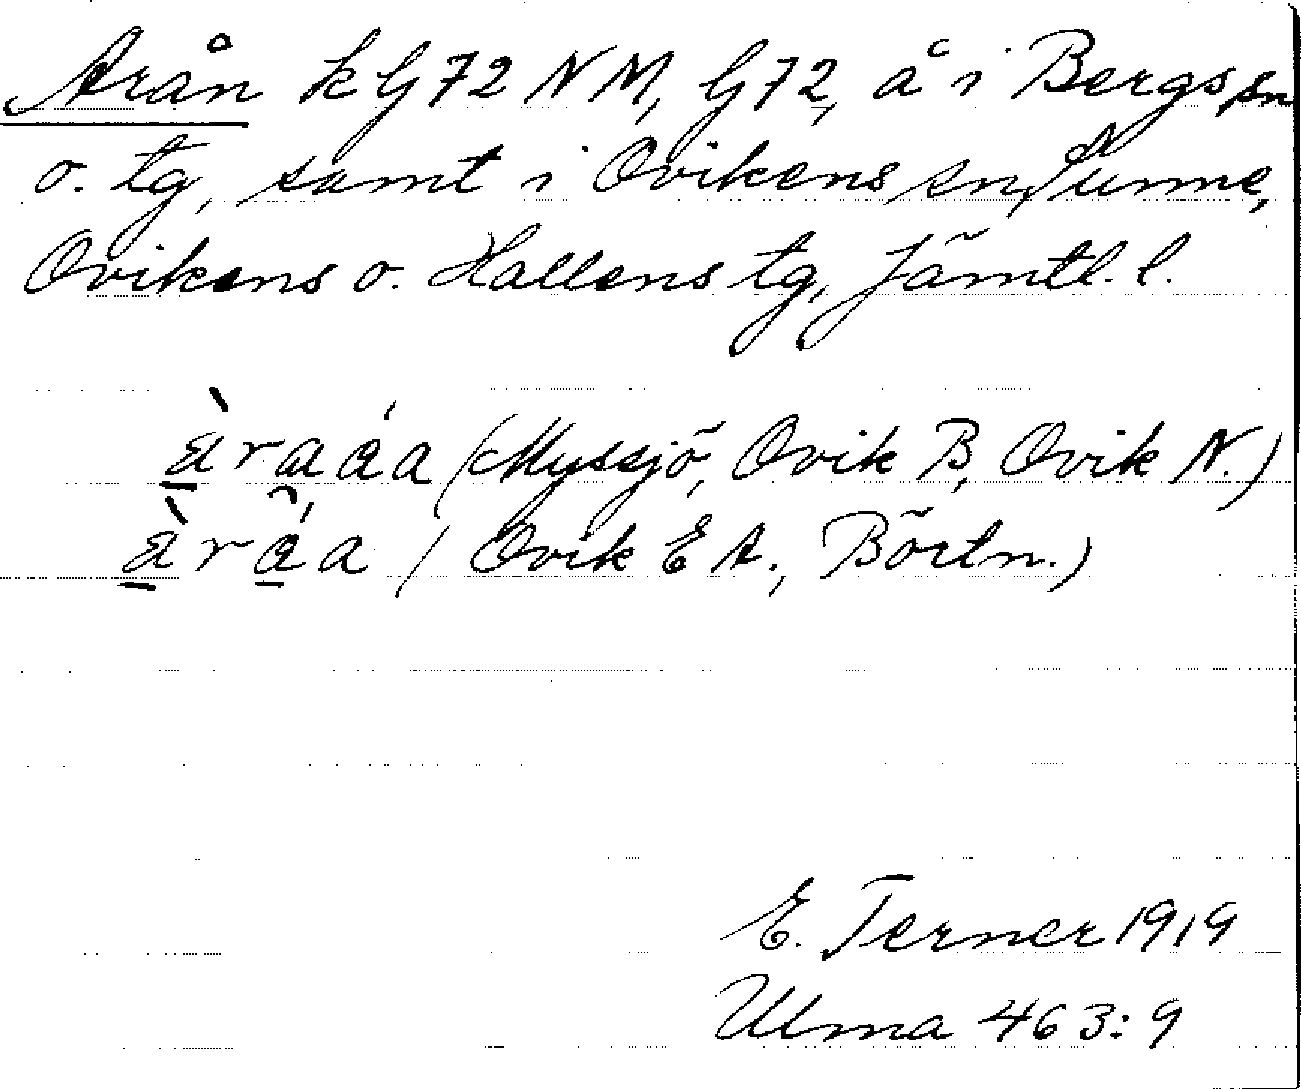 Arån k G 72 N M, G 72, å i Bergs sn
o. tg, samt i Ovikens sn, Sunne,
Ovikens o. Hallens tg, Jämtl. l.
àraáa (Myssjö, Ovik B, Ovik N.)
àrấa (Ovik E A., Börtn.)
E. Terner 1919
Ulma 463:9